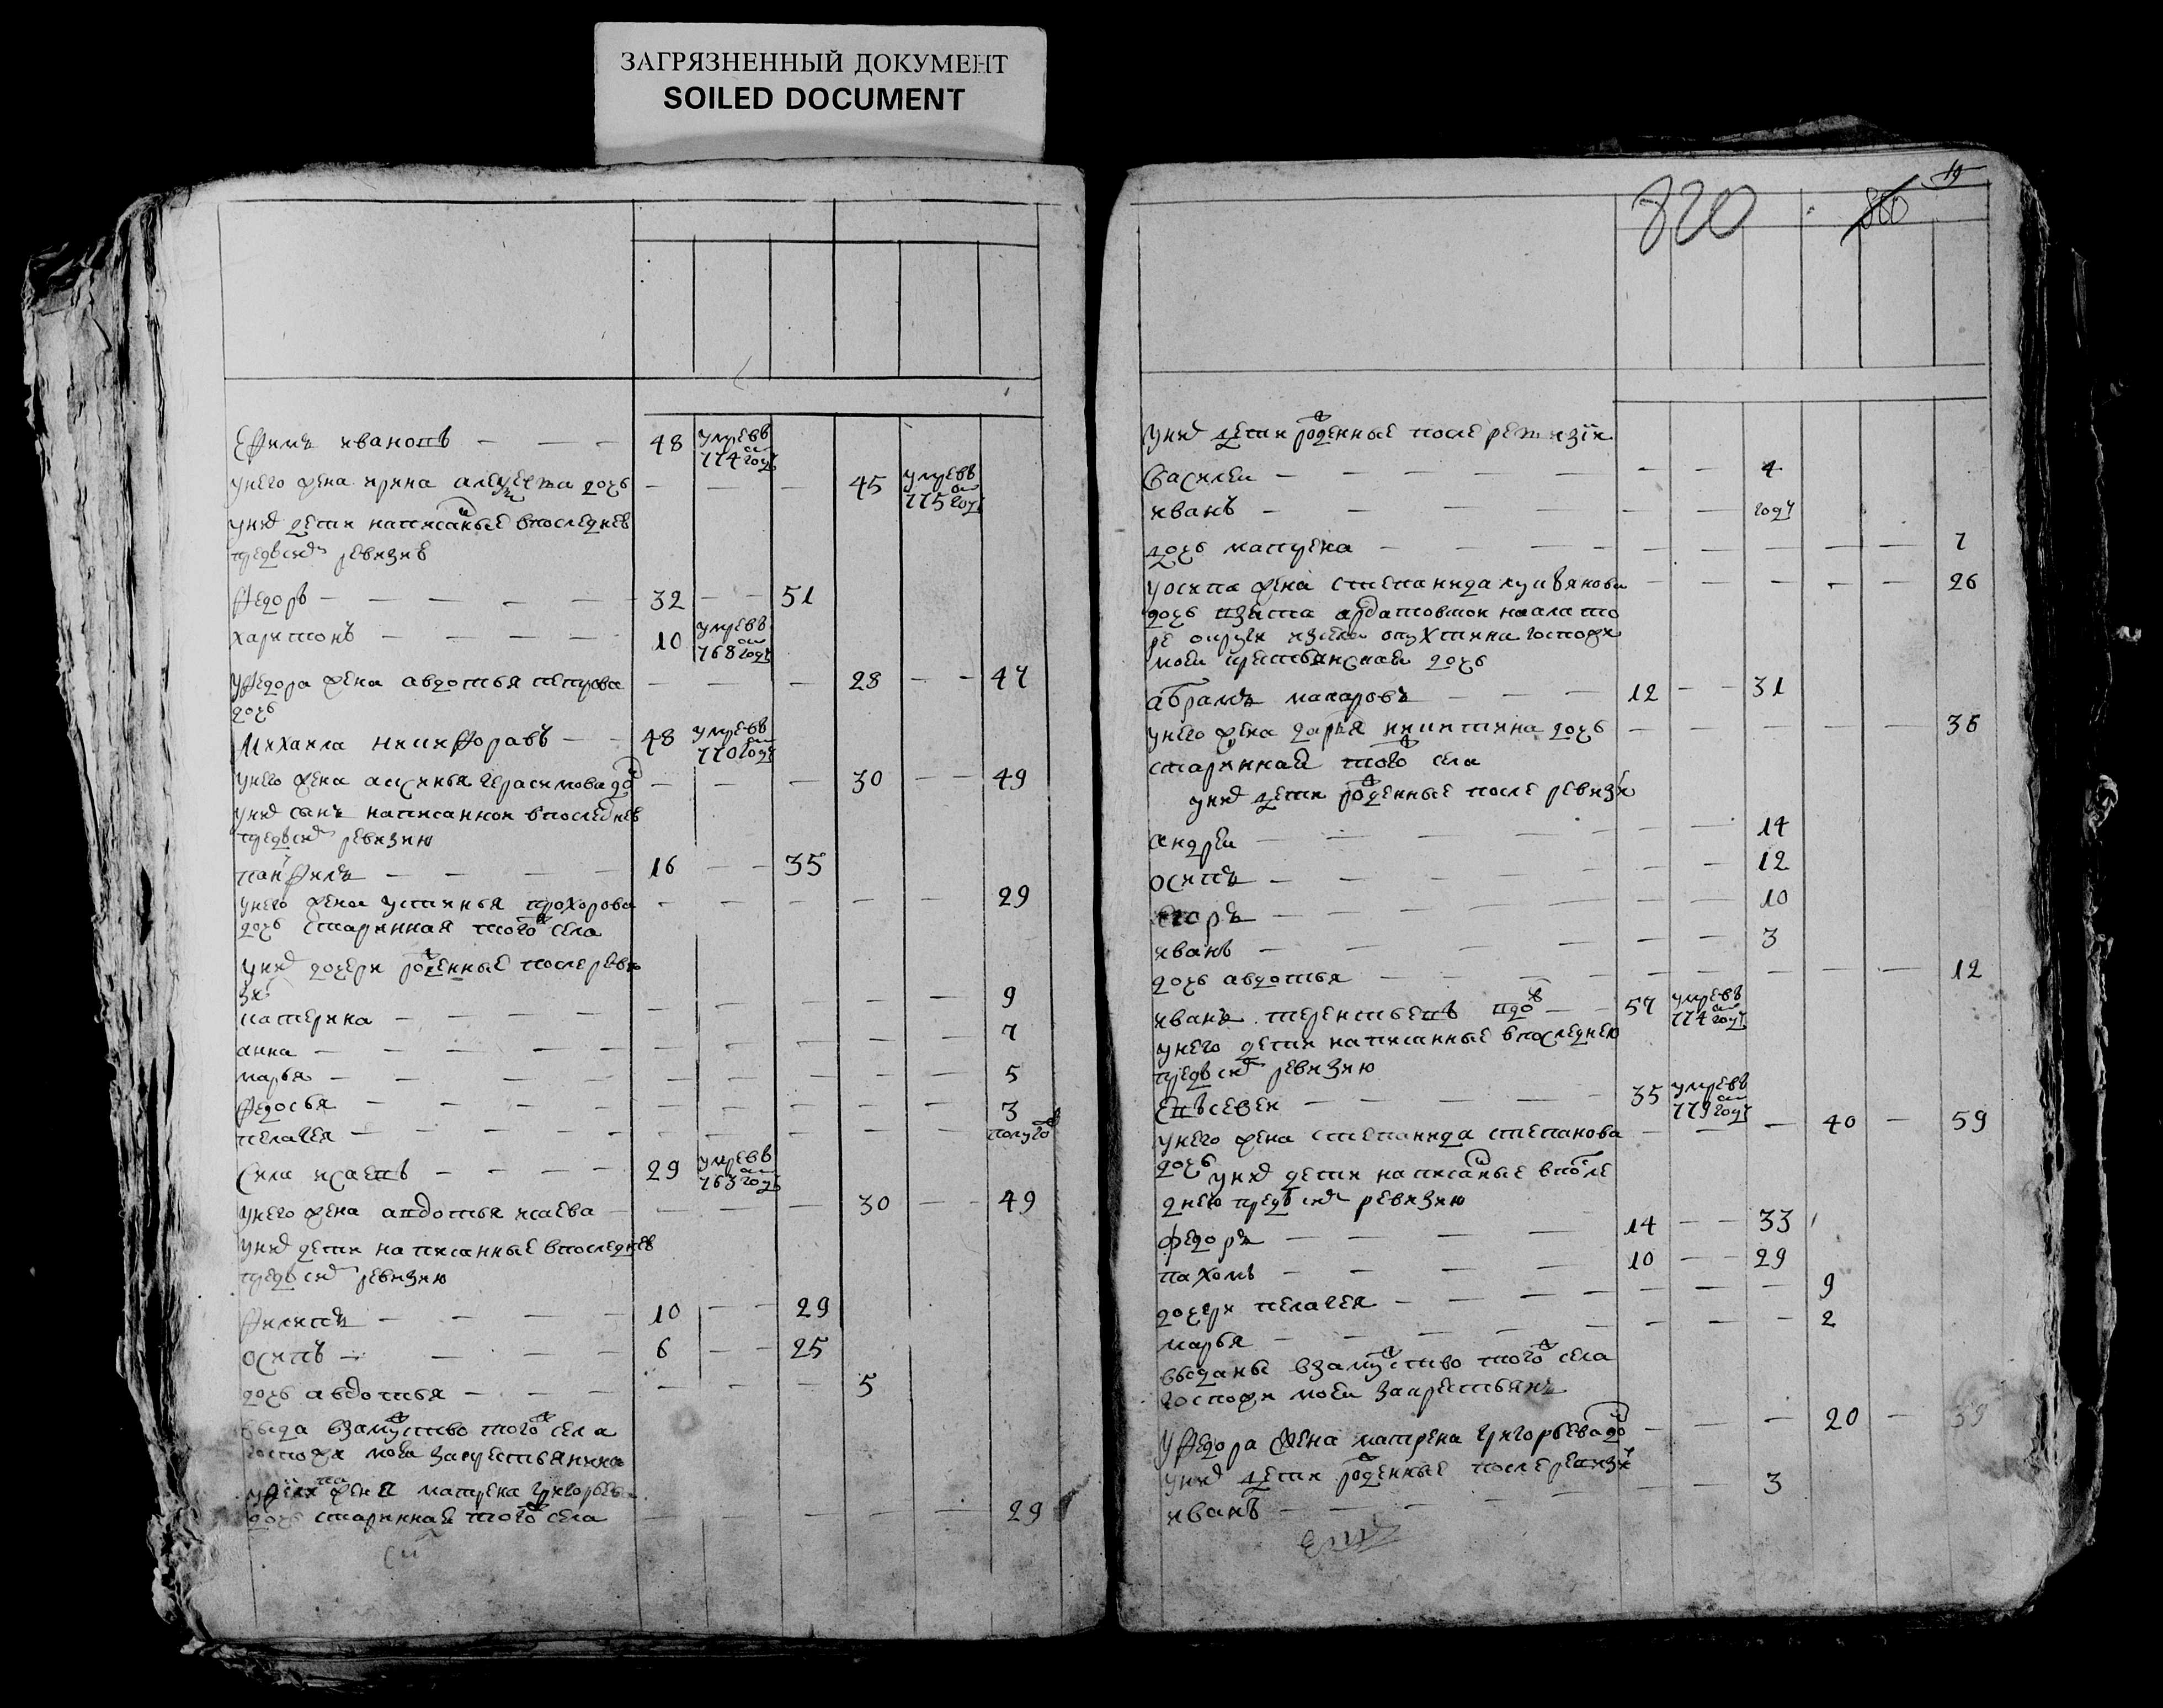 ЗАГРЯЗНЕННЫЙ ДОКУМЕНТ
SOILED DOCUMENT
Ефимъ ивановъ — — — 48 умре въ 774 году
унего жена ирина алексеева дочь — — — 45 умре въ 775 году
унихъ дети написаные впоследнеѣ
предъ сихъ ревизиѣ
Федоръ — — — — — 32 — — 51
харитонъ — — — — 10 умре въ 768 году
уфедора жена авдотья петрова — — — 28 — — 47
дочь
Михаила никифоравъ — — 48 умре въ 770 году
унего жена аксинья герасимова до — — — 30 — — 49
унихъ сынъ написанной впоследнеѣ
предъ сихъ ревизию
панфилъ — — — — 16 — — 35
унего жена устинья прохорова — — — — — 29
дочь старинная того ж села
унихъ дочери рожденные после реви
зи
катерина — — — — — — — — — 9
анна — — — — — — — — — 7
марья — — — — — — — — — 5
федосья — — — — — — — — — 3
пелагея — — — — — — — — — полуго
Сила исаевъ — — — — 29 умре въ 763 году
унего жена авдотья исаева — — — — 30 — — 49
унихъ дети написанные впоследнеѣ
предъ сихъ ревизию
Филипъ — — — — 10 — — 29
осипъ — — — — 6 — — 25
дочь авдотья — — — — — — 5
выда взамужство того ж села
госпожи моеи за крестьянина
уфилипа жена матрена григорьева
дочь старинная того ж села — — — — — 29
820 860 19
унихъ дети рожденные после ревизiи
Василеи — — — — — — — 4
иванъ — — — — — — — году
дочь матрена — — — — — — — — — 7
уосипа жена степанида лукьянова — — — — — 26
дочь взята ардатовской наала то
ре округи изсела опухтина госпожи
моеи крестьянскаи дочь
абрамъ макаровъ — — — 12 — — 31
унего жена дарья никитина дочь — — — — — 36
старинная того ж села
унихъ дети рожденные после ревизи
андреи — — — — — — — 14
осипъ — — — — — — — 12
егоръ — — — — — — — 10
иванъ — — — — — — — 3
дочь авдотья — — — — — — — — — 12
иванъ терентьевъ вдов — — 57 умре въ 774 году
унего дети написанные впоследнею
предъ сихъ ревизию
Евъсевеи — — — — — 35 умре въ 779 году
унего жена степанида степанова — — — 40 — 59
дочь унихъ дети написаные впосле
днею предъ сихъ ревизию
федоръ — — — — 14 — — 33
пахомъ — — — — 10 — — 29
дочери пелагея — — — — — — — 9
марья — — — — — — — — 2
выданы взамужство того ж села
госпожи моеи за крестьянъ
уфедора жена матрена григорьева до — — — 20 — 39
унихъ дети рожденные после ревизи
иванъ — — — — — — — 3